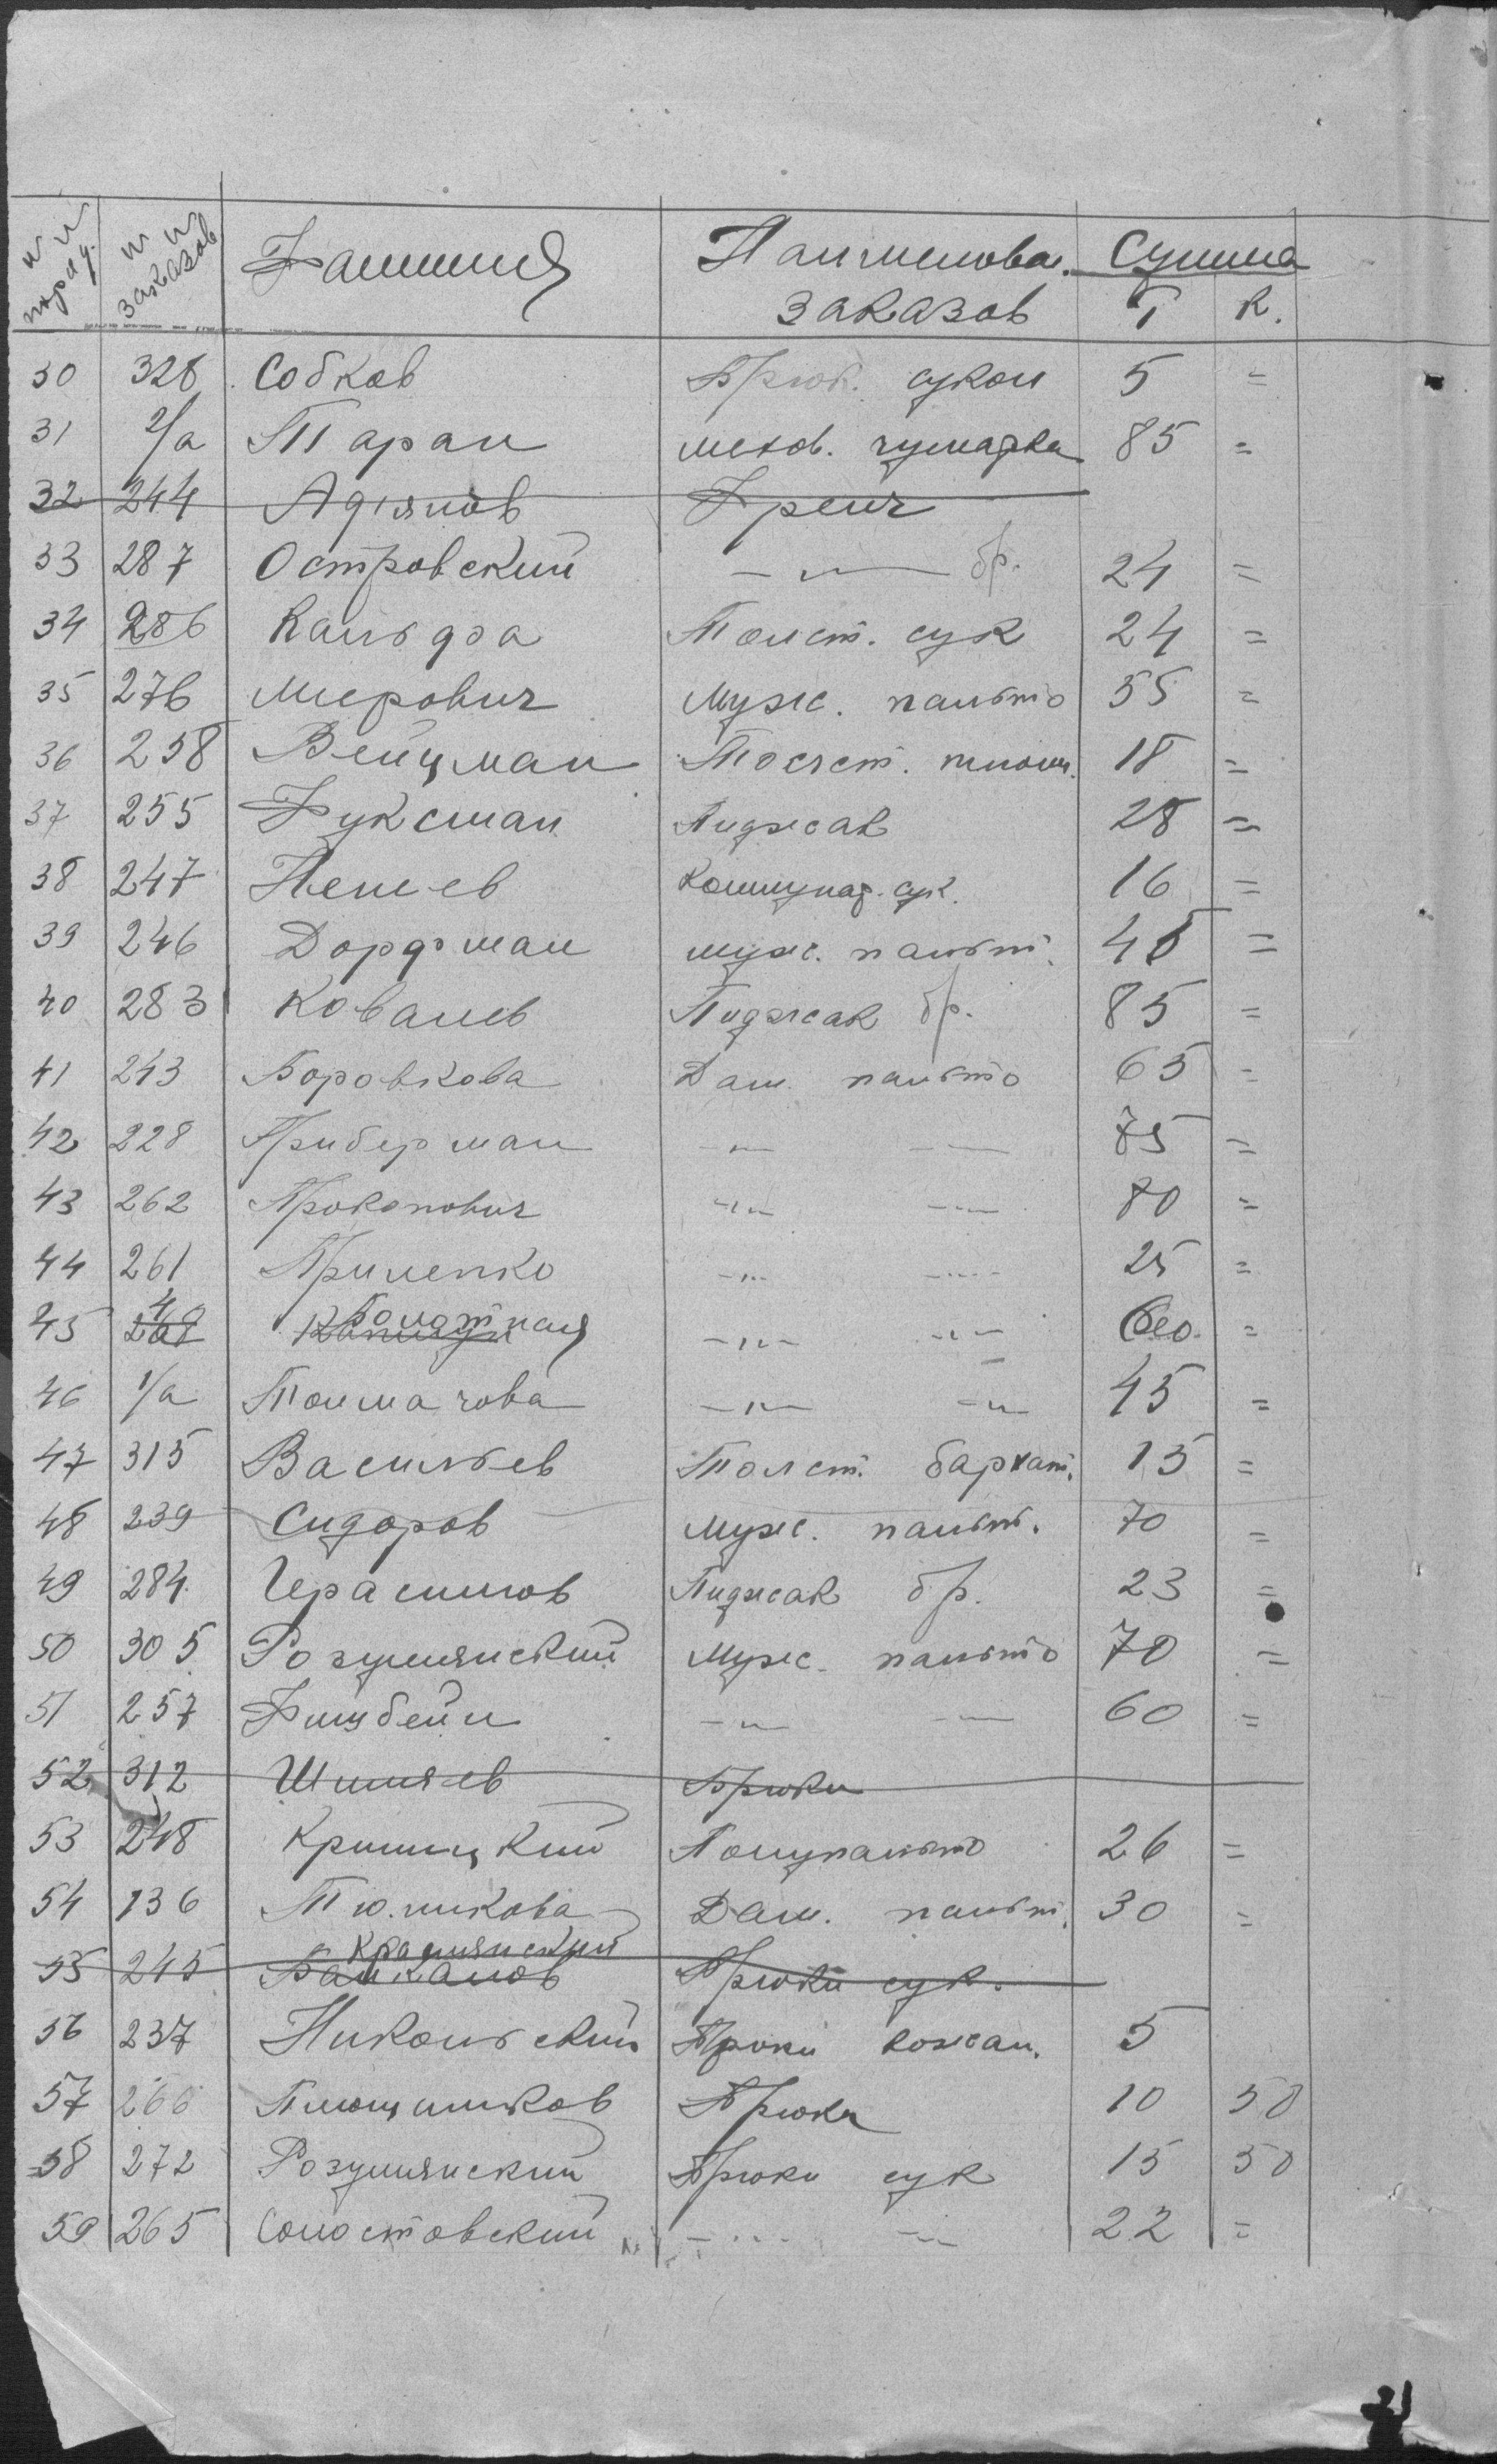 № № поряд. № № заказов Фамилия Наименован. заказов Сумма Т К.
30 328 Собков Брюк. сукон 5 =
31 2/а Таран мехов. чумарка 85 =
32 244 Адрянов Френч
33 287 Островский —〃— бр. 24 =
34 286 Кальфа Толст. сук 24 =
35 276 Мирович Мужс. пальто 55 =
36 258 Вейцман Толст. 18 =
37 255 Фуксман Пиджак 28 =
38 247 Пешев Коммунар. сук. 16 =
39 246 Дорфман мужс. пальт. 45 =
40 283 Ковалев Пиджак бр. 85 =
41 243 Боровкова Дам. пальто 65 =
42 228 Приберман —〃— —〃— 75 =
43 262 Прокопович —〃— —〃— 80 =
44 261 Прилепко —〃— —〃— 25 =
45 Болотная —〃— —〃— =
46 1/а Толмачова —〃— —〃— 45 =
47 315 Васильев Толст. бархат. 15 =
48 239 Сидоров Мужс. пальт. 70 =
49 284 Герасимов Пиджак бр. 23 =
50 305 Розумянский Мужс. пальто 70 =
51 257 Фишбейн —〃— —〃— 60 =
52 312 Шишяев Брюки
53 248 Криницкий Полупальто 26 =
54 136 Тюникова Дам. пальт. 30 =
Крамянский
55 245 Балканов Брюки сук.
56 237 Никольский Брюки кожан. 5
57 266 Плющиков Брюки 10 50
58 272 Розумянский Брюки сук 15 50
59 265 Солостовский —〃— —〃— 22 =